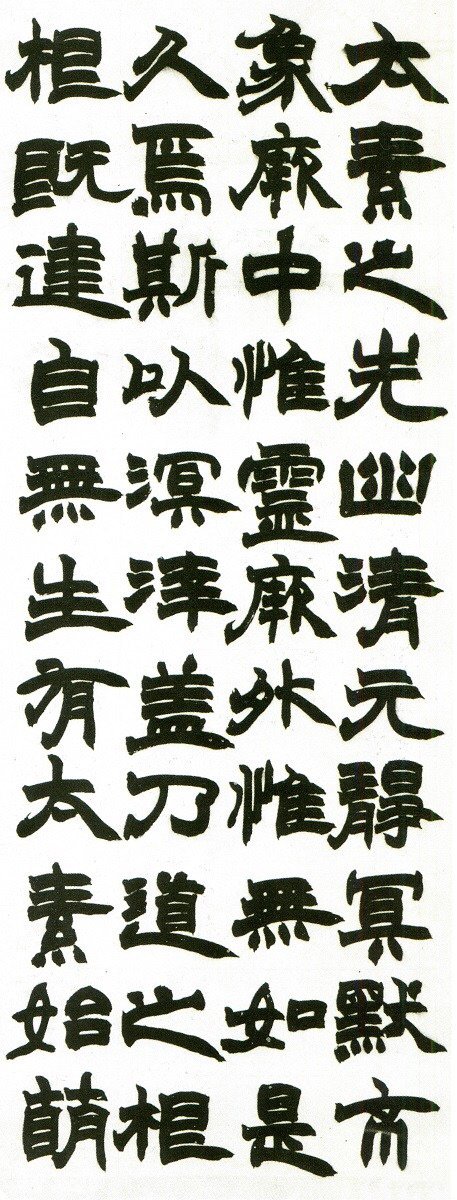 太素之先幽清元靜冥默
象厥中惟霊厥外惟無如是
久焉斯以溟涬盖乃道之相
相既建自無生有太素始萌